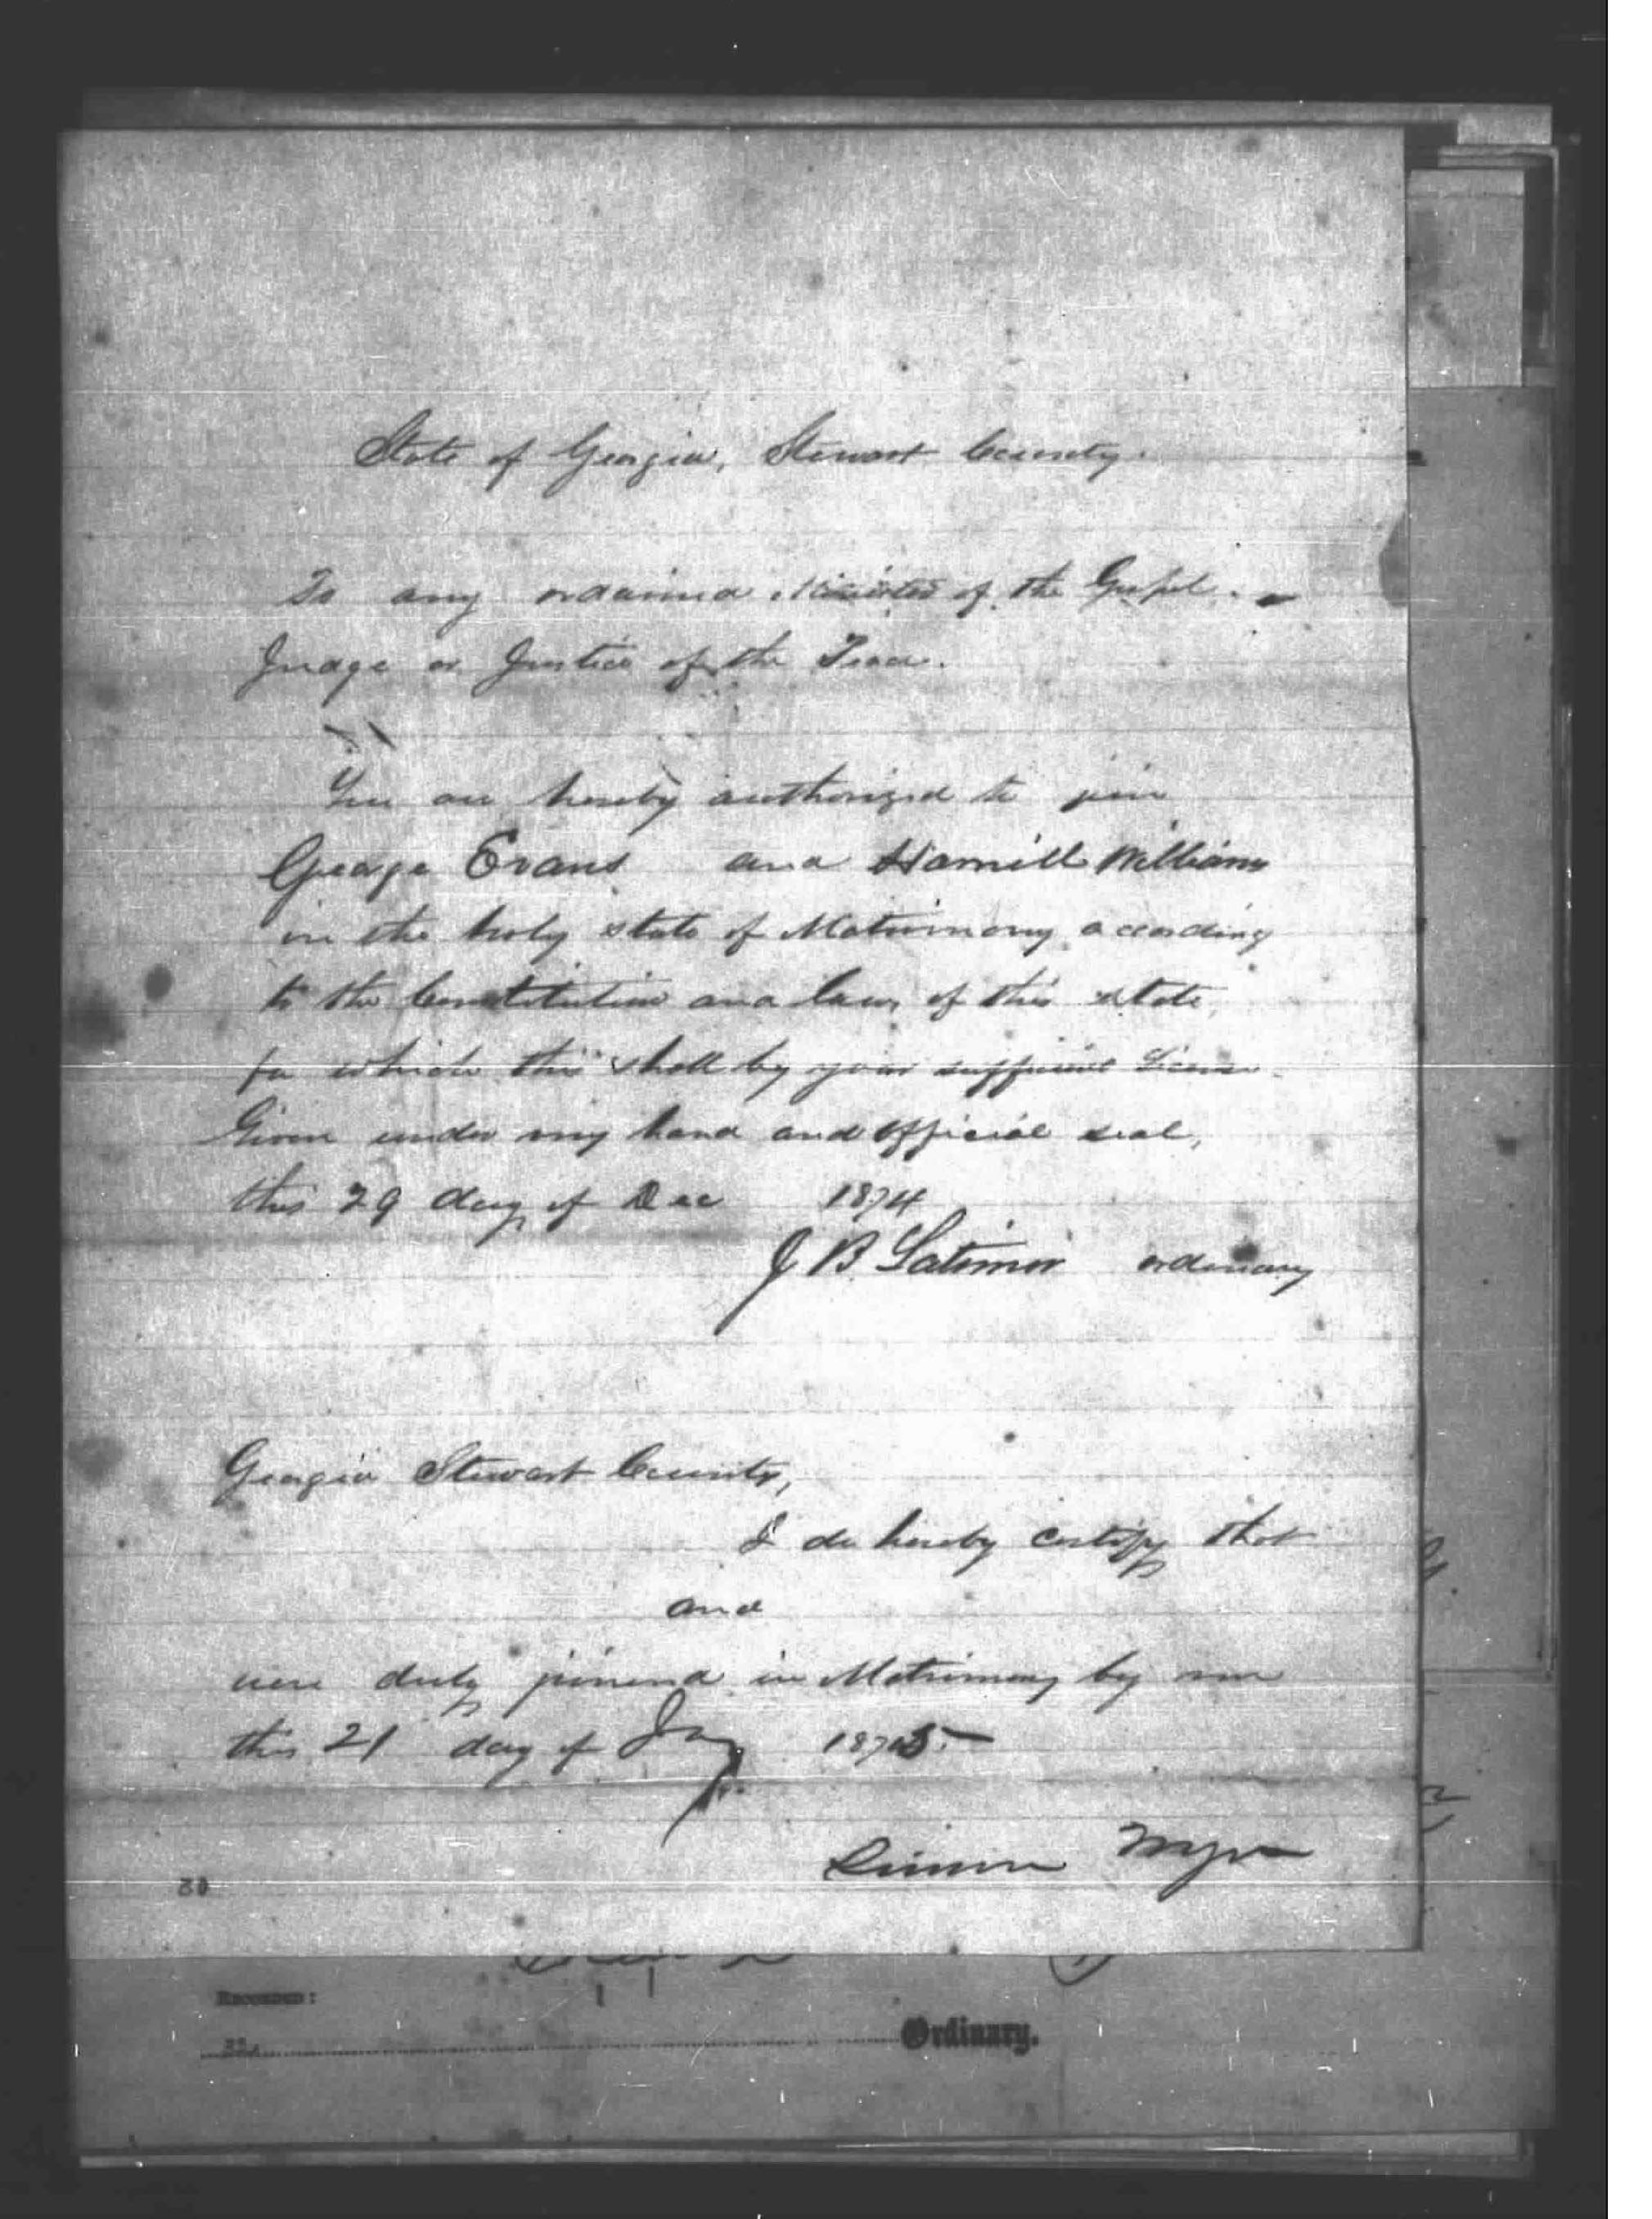 State of Georgia, Stewart County.
To any ordained Minister of the Gospel.
Judge or Justice of the Peace.
You are hereby authorized to join
George Evans and Williams
in the holy state of Matrimony according
to the Constitution and laws of this state,
for which this shall by your sufficient License.
Given under my hand and official seal,
this 29 day of Dec 1874
J B Latimer ordinary
Georgia Stewart County,
I do hereby certify that
and
were duly joined in Matrimony by me
this 21 day of 1875
Simon
Recorded:
Ordinary.